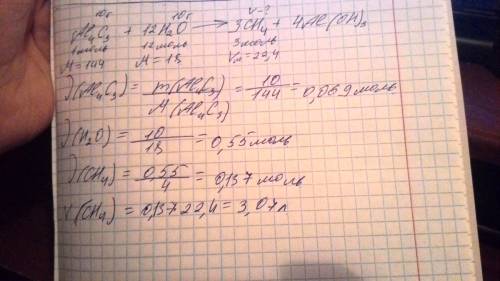 10г 10г V-?
Al₄C₃ + 12H₂O → 3CH₄ + 4Al(OH)₃
1моль 12моль 3моль
M=144 M=18 Vм=22,4
ν(Al₄C₃) = m(Al₄C₃) / M(Al₄C₃) = 10/144 = 0,069 моль
ν(H₂O) = 10/18 = 0,55 моль
ν(CH₄) = 0,55/4 = 0,137 моль
V(CH₄) = 0,137 22,4 = 3,07л